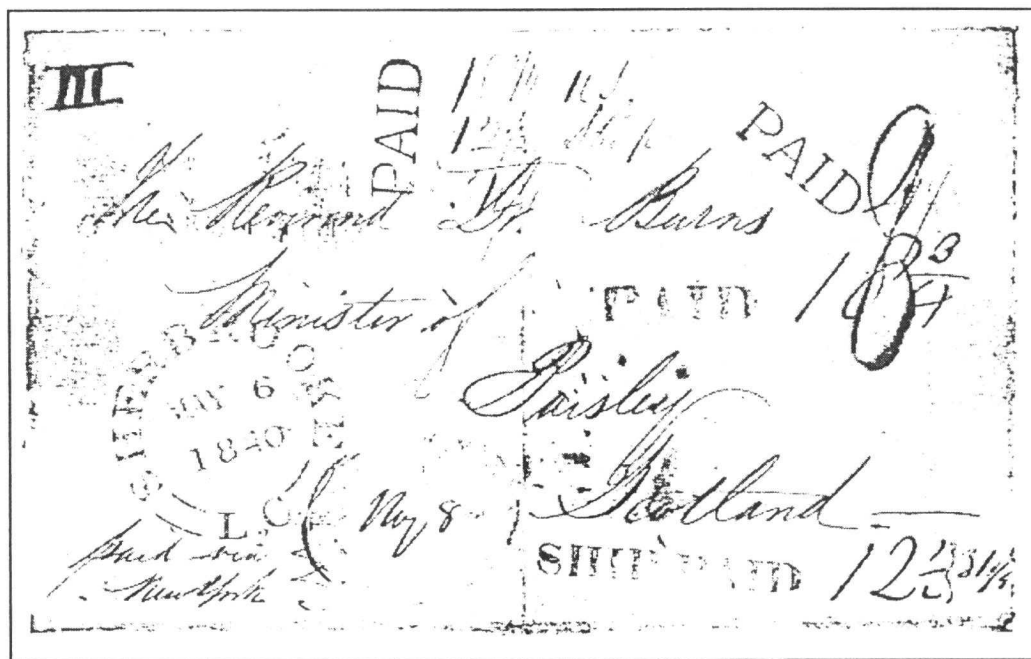 III
PAID
PAID
The Reverend Dr. Burns
18 3/4
Minister of
PAID
Paisley
SHERBROOKE
MAY 6
1840
L.C.
Scotland
May 8
paid via
New York
SHIP PAID 12 1/2